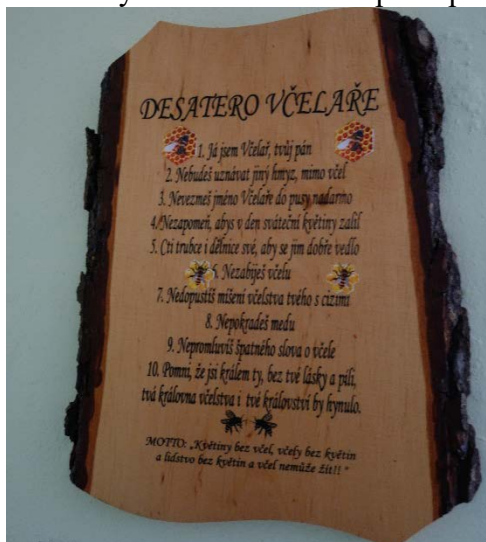 DESATERO VČELAŘE
1. Já jsem Včelař, tvůj pán
2. Nebudeš uznávat jiný hmyz, mimo včel
3. Nevezmeš jméno Včelaře do pusy nadarmo
4. Nezapomeň, abys v den sváteční květiny zalil
5. Cti trubce i dělnice své, aby se jim dobře vedlo
6. Nezabiješ včelu
7. Nedopustíš míšení včelstva tvého s cizími
8. Nepokradeš medu
9. Nepromluvíš špatného slova o včele
10. Pomni, že jsi králem ty, bez tvé lásky a píli,
tvá královna včelstva i tvé království by hynulo.
MOTTO: „Květiny bez včel, včely bez květin
a lidstvo bez květin a včel nemůže žít!! "